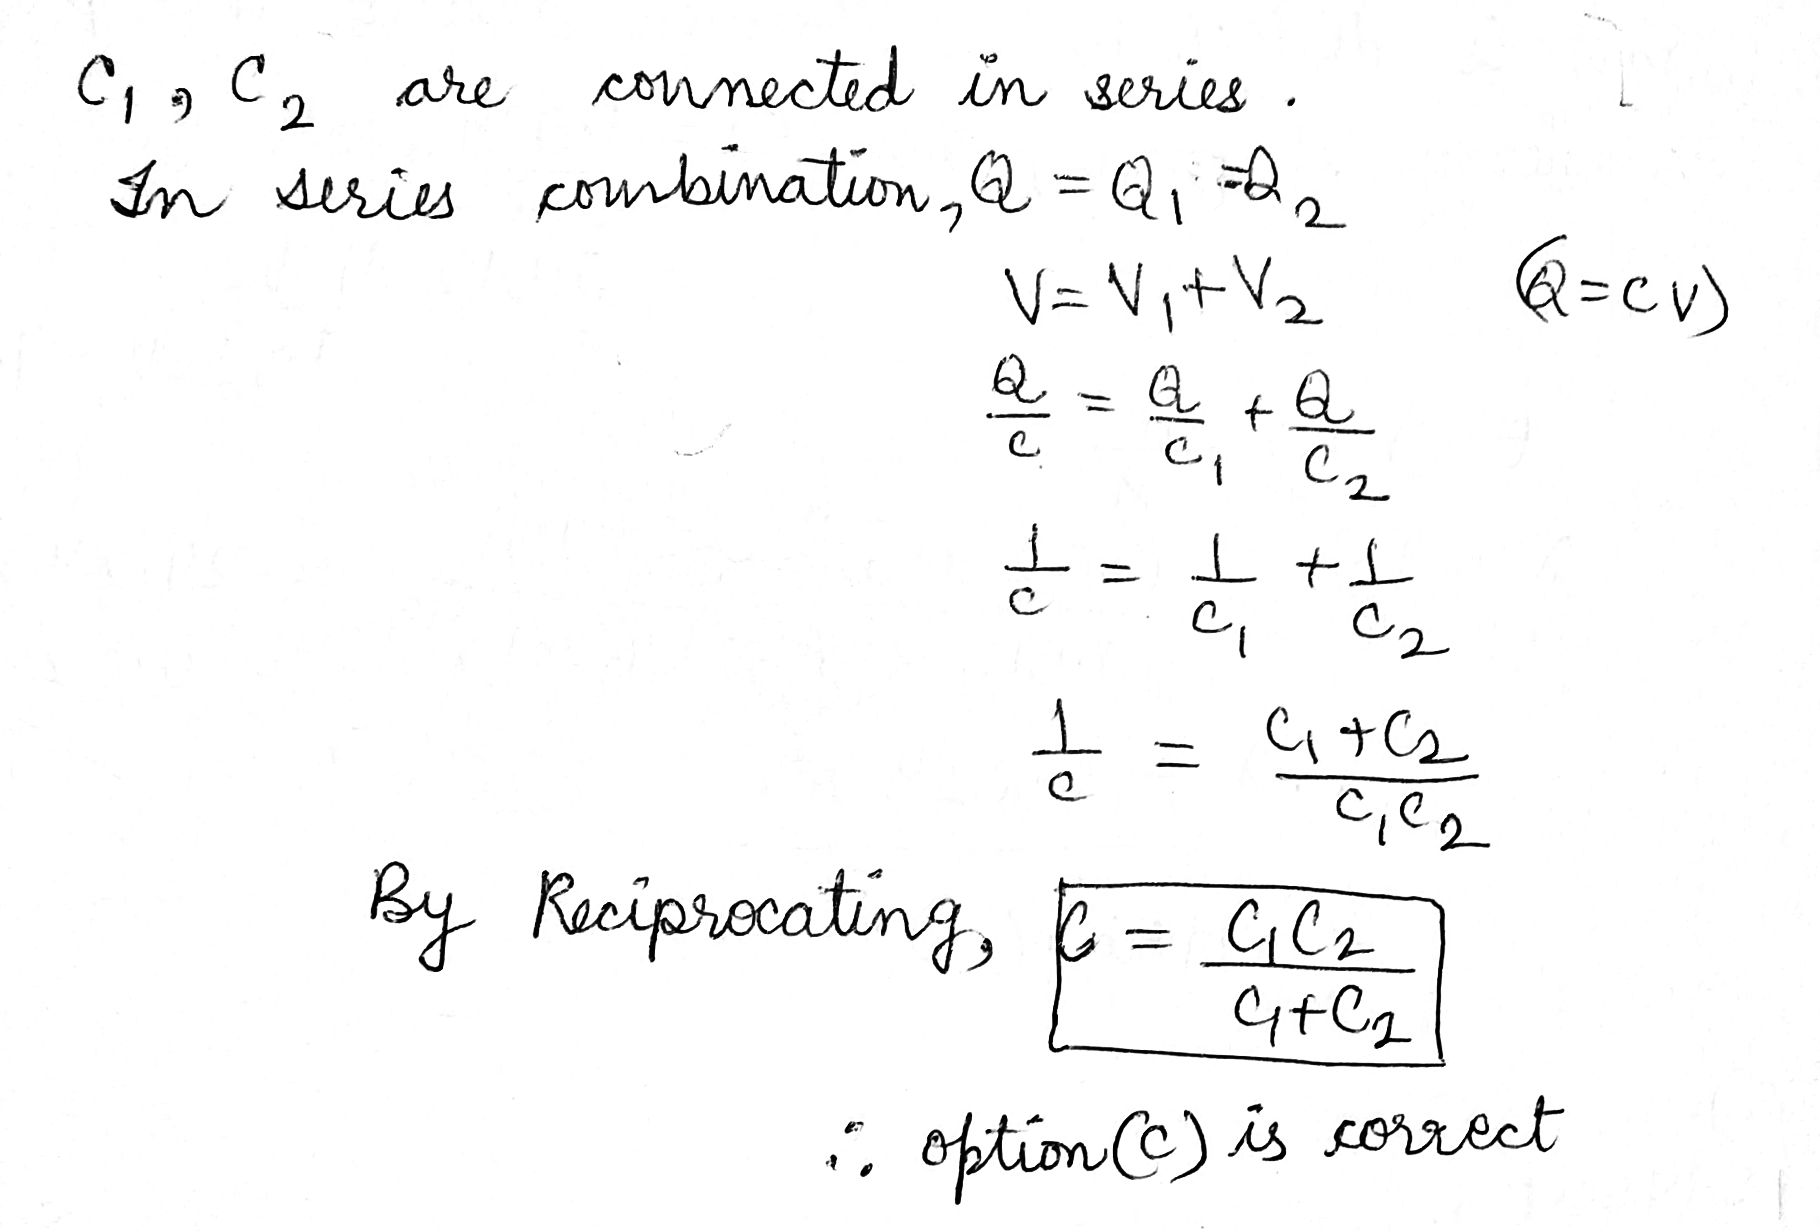 C₁, C₂ are connected in series.
In series combination, Q = Q₁ = Q₂
V = V₁ + V₂ (Q = CV)
Q/C = Q/C₁ + Q/C₂
1/C = 1/C₁ + 1/C₂
1/C = (C₁ + C₂)/(C₁C₂)
By Reciprocating, C = C₁C₂/(C₁+C₂)
∴ option (C) is correct